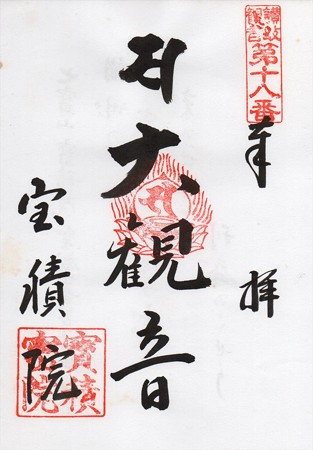 讃岐
観音
第十八番
奉拝
大観音
宝積院
寳積
院